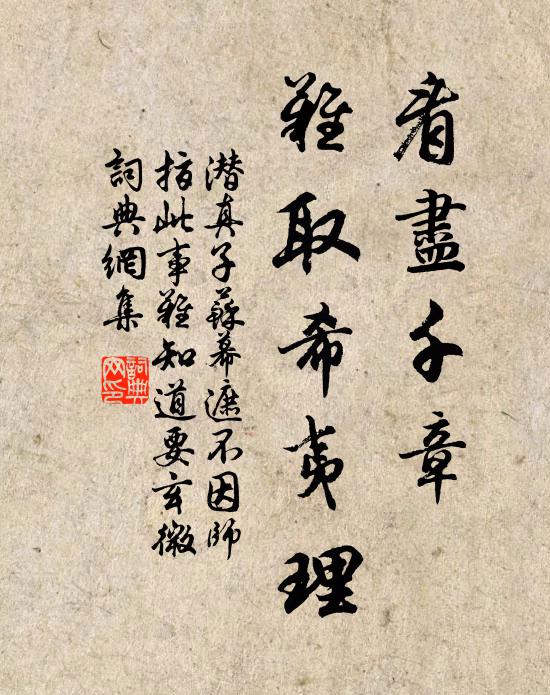 看盡千章
難取希夷理
潛真子蘇幕遮不因師
指此事難知道要玄微
詞典網集
詞典
网印